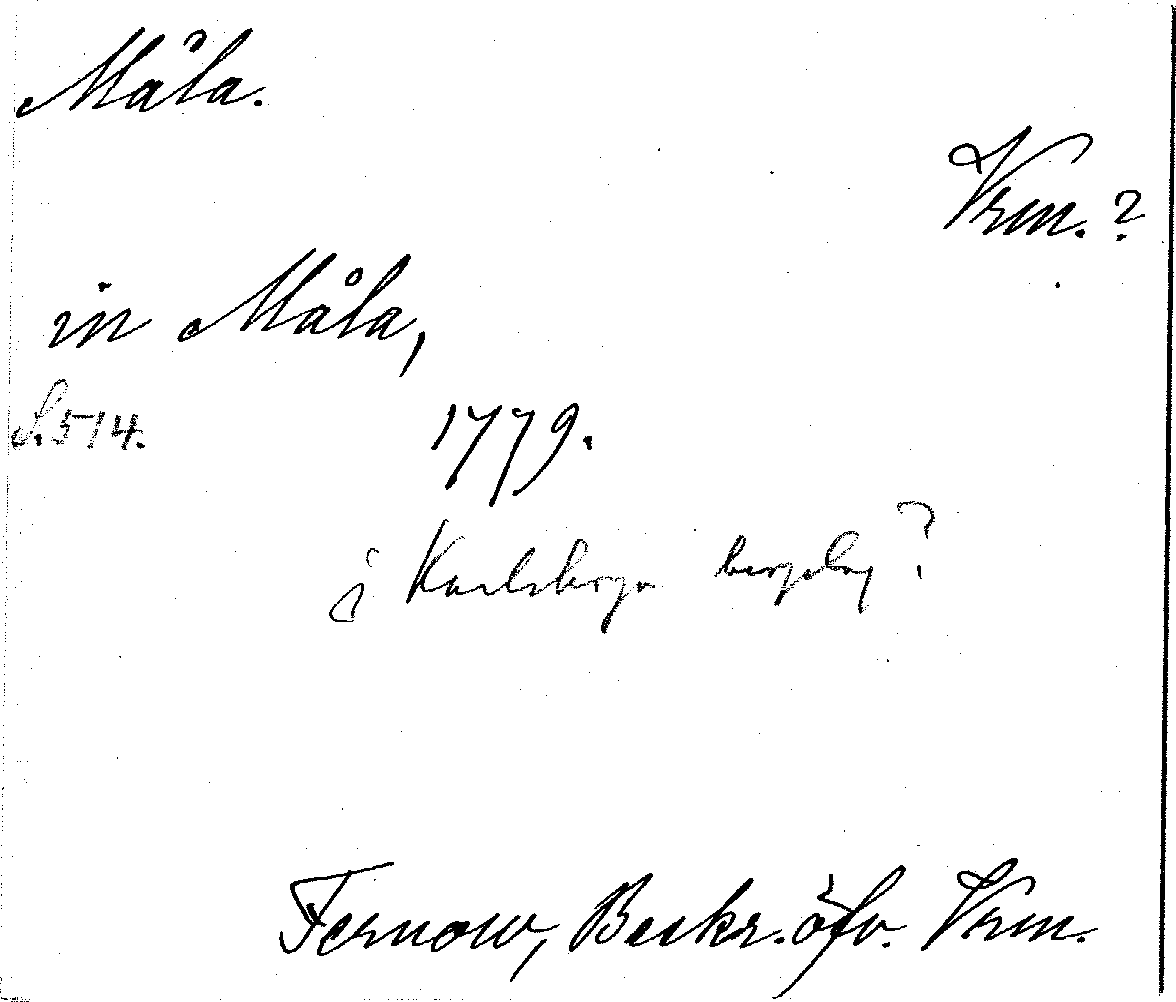 Måla.
Vrm.?
in Måla,
S. 514.
1779.
i Karlskoga bergslag?
Fernow, Beskr. öfv. Vrm.